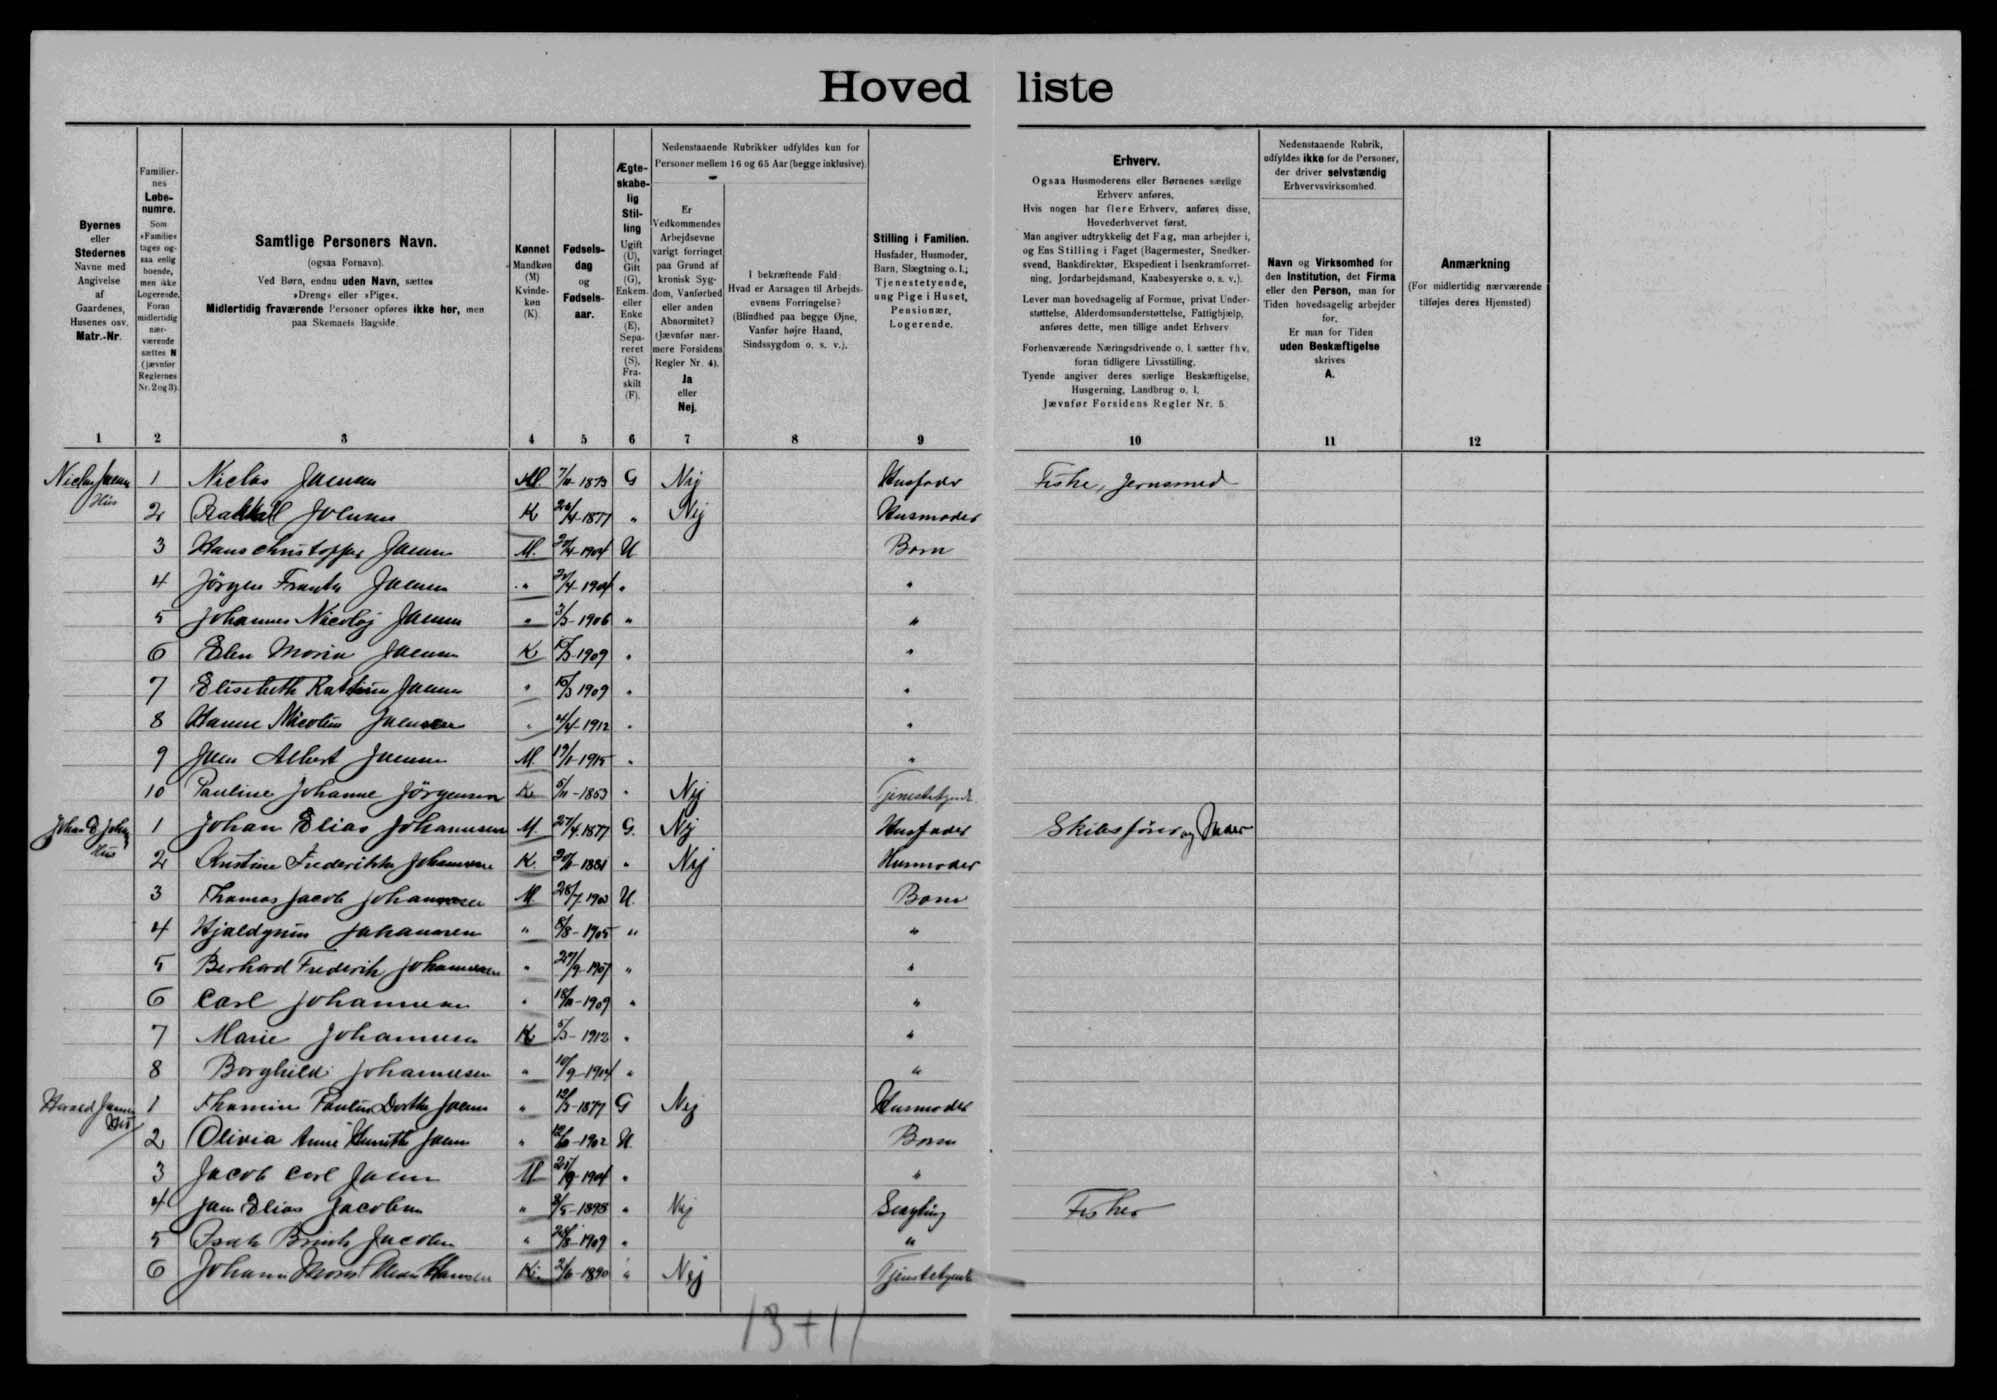 Hovedliste
Byernes
eller
Stedernes
Navne med
Angivelse
af
Gaardenes,
Husenes osv.
Matr.-Nr.
Familier-
nes
Løbe-
numre.
Som
»Familie«
tages og-
saa enlig
boende,
men ikke
Logerende.
Foran
midlertidig
nær-
værende
sættes N
(jævnfør
Reglernes
Nr. 2 og 3).
Samtlige Personers Navn.
(ogsaa Fornavn).
Ved Børn, endnu uden Navn, sættes
»Dreng« eller »Pige«.
Midlertidig fraværende Personer opføres ikke her, men
paa Skemaets Bagside.
Kønnet
Mandkøn
(M)
Kvinde-
køn
(K).
Fødsels-
dag
og
Fødsels-
aar.
Ægte-
skabe-
lig
Stil-
ling
Ugift
(U),
Gift
(G),
Enkem.
eller
Enke
(E),
Sepa-
reret
(S),
Fra-
skilt
(F).
Nedenstaaende Rubrikker udfyldes kun for
Personer mellem 16 og 65 Aar (begge inklusive).
Er
Vedkommendes
Arbejdsevne
varigt forringet
paa Grund af
kronisk Syg-
dom, Vanførhed
eller anden
Abnormitet?
(Jævnfør nær-
mere Forsidens
Regler Nr. 4).
Ja
eller
Nej.
I bekræftende Fald:
Hvad er Aarsagen til Arbejds-
evnens Forringelse?
(Blindhed paa begge Øjne,
Vanfør højre Haand,
Sindssygdom o. s. v.).
Stilling i Familien.
Husfader, Husmoder,
Barn, Slægtning o. l.;
Tjenestetyende,
ung Pige i Huset,
Pensionær,
Logerende.
Erhverv.
Ogsaa Husmoderens eller Børnenes særlige
Erhverv anføres.
Hvis nogen har flere Erhverv, anføres disse,
Hovederhvervet først.
Man angiver udtrykkelig det Fag, man arbejder i,
og Ens Stilling i Faget (Bagermester, Snedker-
svend, Bankdirektør, Ekspedient i Isenkramforret-
ning, Jordarbejdsmand, Kaabesyerske o. s. v.).
Lever man hovedsagelig af Formue, privat Under-
støttelse, Alderdomsunderstøttelse, Fattighjælp,
anføres dette, men tillige andet Erhverv
Forhenværende Næringsdrivende o. l. sætter fhv.
foran tidligere Livsstilling.
Tyende angiver deres særlige Beskæftigelse,
Husgerning, Landbrug o. l.
Jævnfør Forsidens Regler Nr. 5.
Nedenstaaende Rubrik,
udfyldes ikke for de Personer,
der driver selvstændig
Erhvervsvirksomhed.
Navn og Virksomhed for
den Institution, det Firma
eller den Person, man for
Tiden hovedsagelig arbejder
for.
Er man for Tiden
uden Beskæftigelse
skrives
A.
Anmærkning
(For midlertidig nærværende
tilføjes deres Hjemsted)
1 2 3 4 5 6 7 8 9 10 11 12
Hus 1 Niclas Joensen M 1873 G Nej Husfader Fisker, Jernsmed
2 Joensen K 1877 " Nej Husmoder
3 Hans Christoffer Joensen M. 1904 U Barn
4 Jörgen Joensen " 1904 " "
5 Johannes Nicolaj Joensen " 3/3-1906 " "
6 Elen Joensen K 1909 " "
7 Elisebeth Joensen " 1909 " "
8 Hanne Nicoline Joensen " 1912 " "
9 Joen Albert Joensen M. 1915 " "
10 Pauline Johanne Jörgensen K 1853 " Nej Tjenestetyende
Hus 1 Johan Elias Johannesen M. 27/4.1877 G. Nej Husfader Skibsförer og
2 Kristine Frederikke Johannesen K. 1881 " Nej Husmoder
3 Thomas Jacob Johannesen M. 28/7.1903 U. Barn
4 Johannesen " 8/8-1905 " "
5 Berhard Frederik Johannesen " 27/9-1907 " "
6 Carl Johannesen " 1909 " "
7 Marie Johannesen K 5/3-1912 " "
8 Borghild Johannesen " 10/9-1904 " "
1 Joensen " 1877 G Nej Husmoder
2 Olivia Anne Joensen " 1902 U. Barn
3 Jacob Carl Joensen M 1904 " "
4 Elias Jacobsen " 1898 " Nej Fisker
5 Jacobsen " 1909 " "
6 K. 1890 " Nej Tjenstetyende
13+11